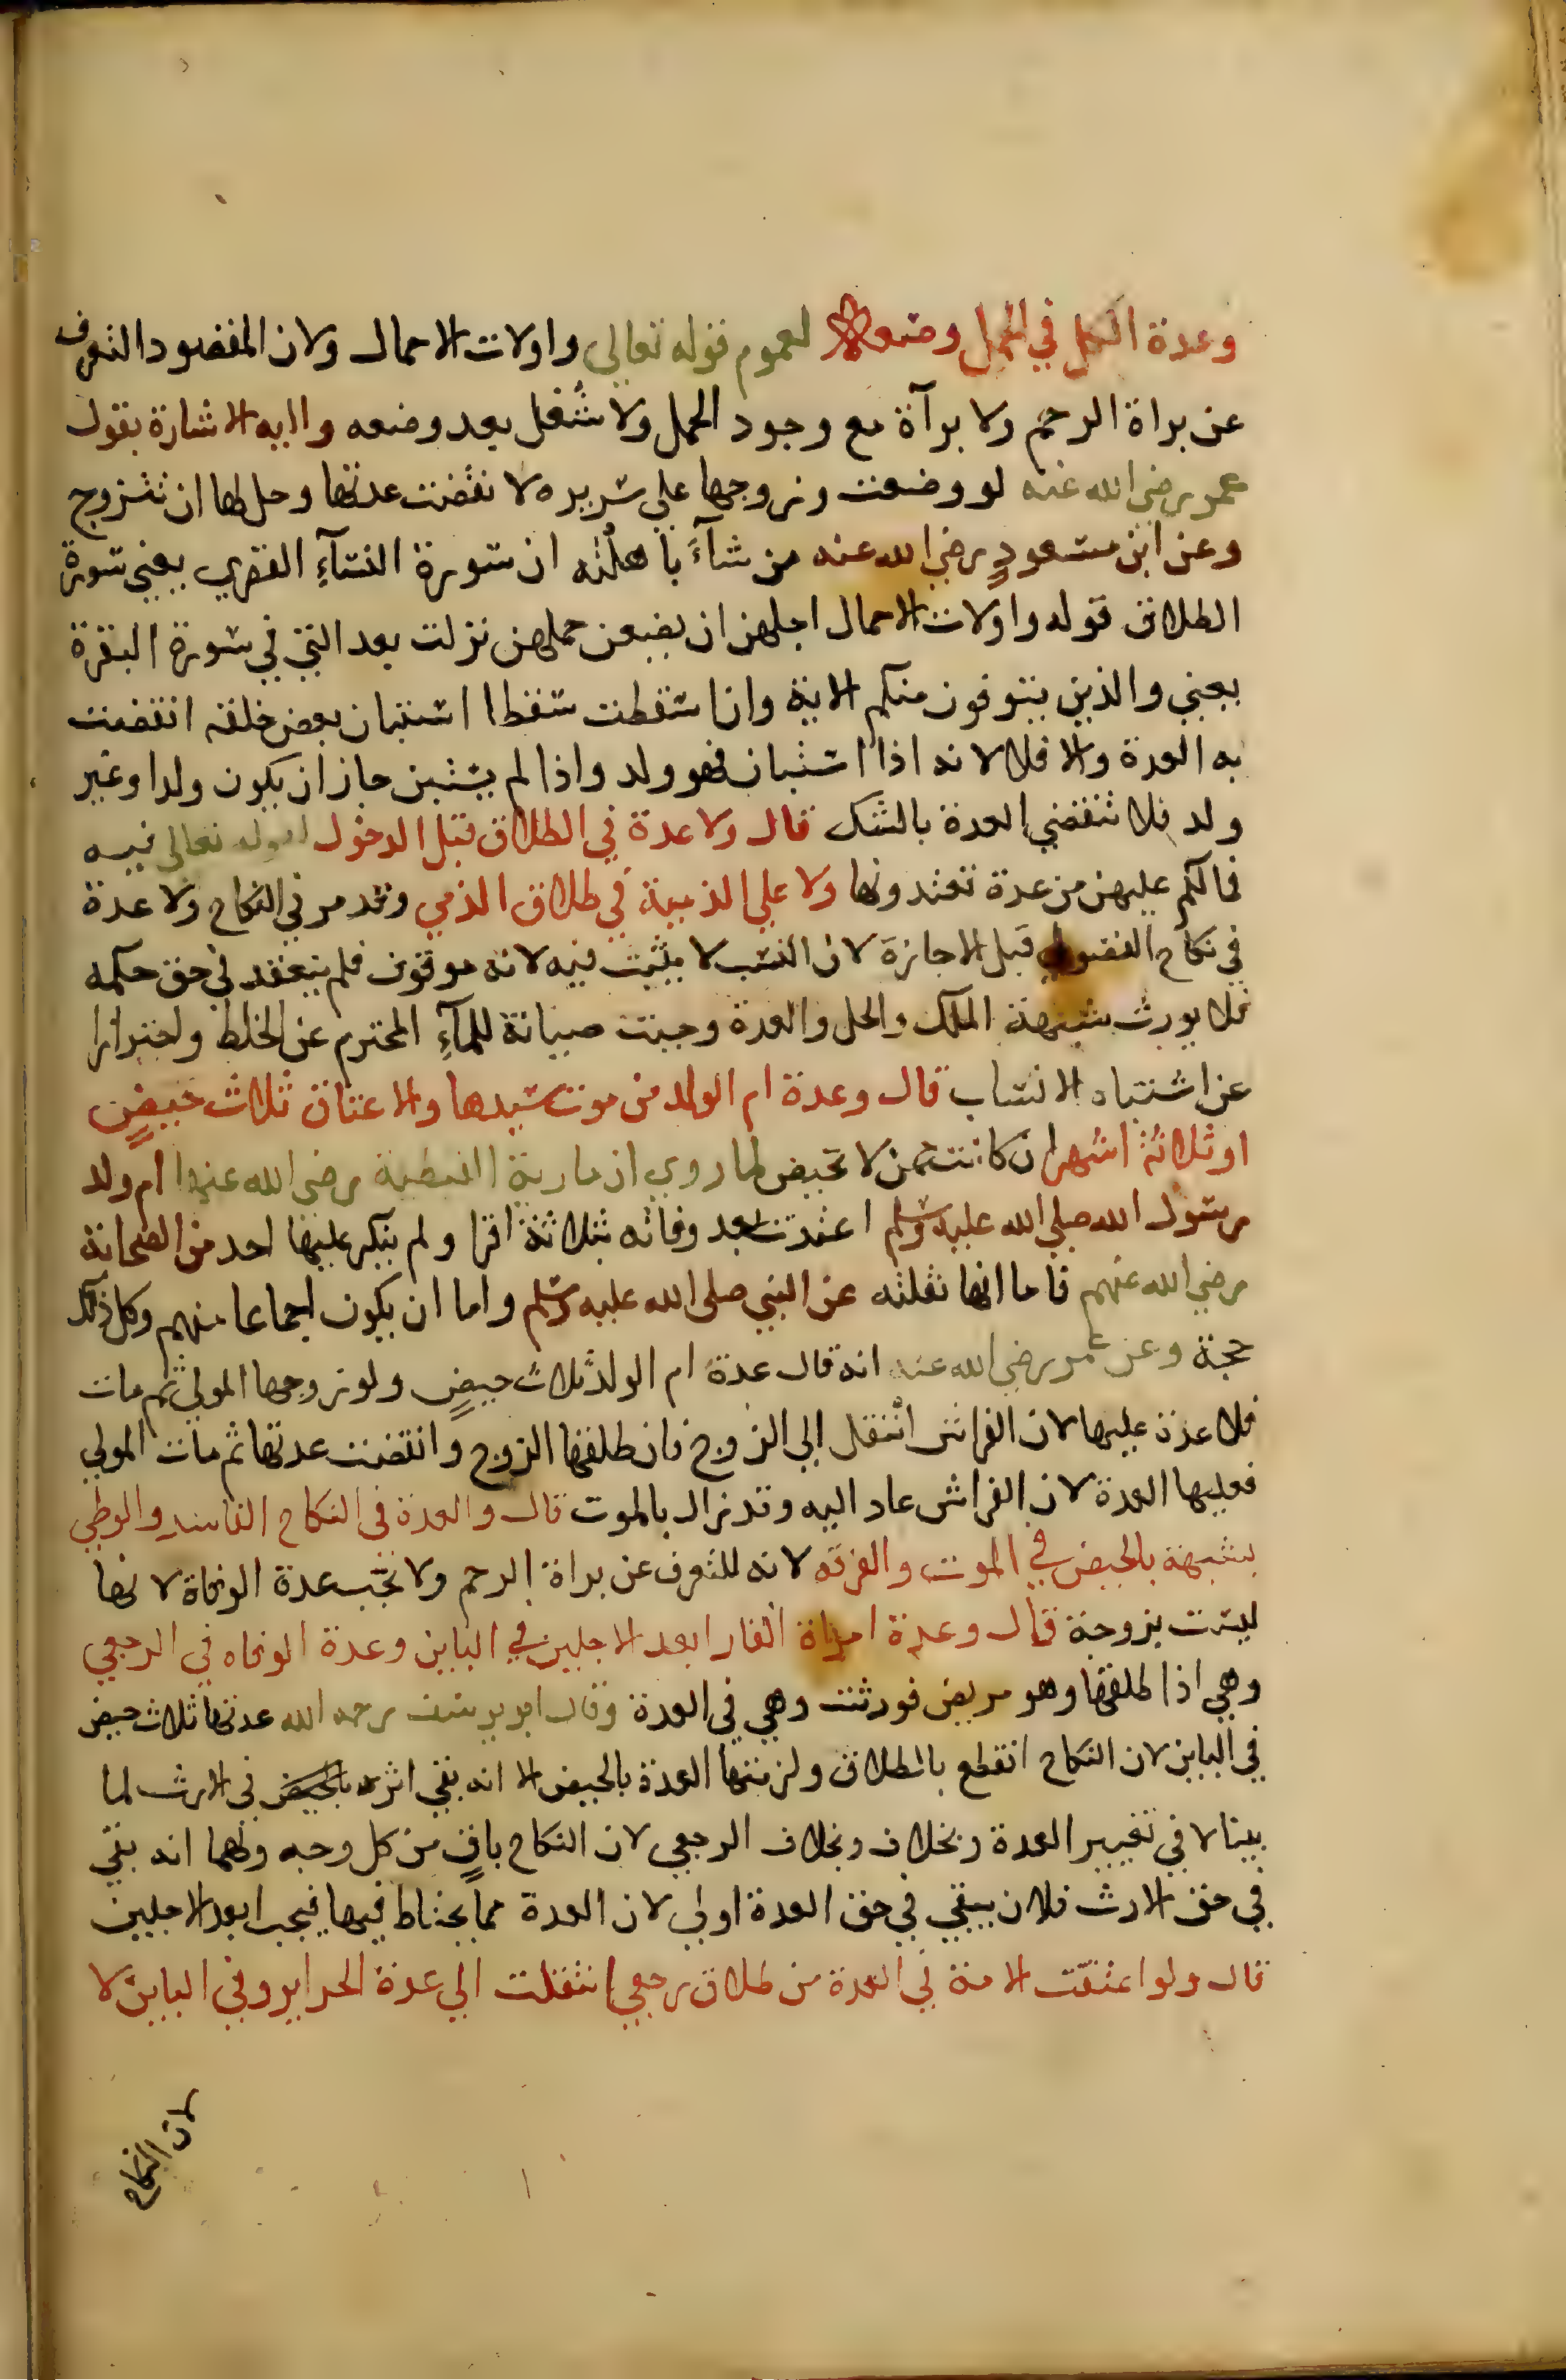 وعدة الكل في الحمل وضعه لعموم قوله تعالى واولات الاحمال ولان المقصود التعرف
عن براة الرحم ولا برآة مع وجود الحمل ولا شغل بعد وضعه واليه الاشارة بقول
عمر رضي الله عنه لو وضعت وزوجها على سريره لانقضت عدتها وحل لها ان تتزوج
وعن ابن مسعودٍ رضي الله عنه من شآءَ باهلته ان سورة النسآءِ القصرى يعني سورة
الطلاق قوله واولات الاحمال اجلهن ان يضعن حملهن نزلت بعد التي في سورة البقرة
يعني والذين يتوفون منكم الاية وان اسقطت سقطا استبان بعض خلقه انقضت
به العدة والا فلا لانه اذا استبان فهو ولد واذا لم يستبن جاز ان يكون ولدا وغير
ولد فلا تنقضي العدة بالشك قال ولا عدة في الطلاق قبل الدخول لقوله تعالى فيه
فمالكم عليهن من عدة تعتدونها ولا على الذمية في طلاق الذمي وقد مر في النكاح ولا عدة
في نكاح الفضولي قبل الاجازة لان النسب لا يثبت فيه لانه موقوف فلم ينعقد في حق حكمه
فلا يورث شبهة الملك والحل والعدة وجبت صيانة للمآءِ المحترم عن الخلط واحترازا
عن اشتباه الانساب قال وعدة ام الولد من موت سيدها والاعتاق ثلاث حيضٍ
او ثلاثة اشهر ان كانت ممن لا تحيض لما روي ان مارية القبطية رضي الله عنها ام ولد
رسول الله صلى الله عليه وسلم اعتدت بعد وفاته بثلاثة اقرا ولم ينكر عليها احد من الصحابة
رضي الله عنهم فاما انها نقلته عن النبي صلى الله عليه وسلم واما ان يكون اجماعا منهم وكل ذلك
حجة وعن عمر رضي الله عنه انه قال عدة ام الولد ثلاث حيضٍ ولو زوجها المولى ثم مات
فلا عدة عليها لان الفراش انتقل الى الزوج فان طلقها الزوج وانقضت عدتها ثم مات المولى
فعليها العدة لان الفراش عاد اليه وقد زال بالموت قال والعدة في النكاح الفاسد والوطي
بشبهة بالحيض في الموت والفرقه لانه للتعرف عن براة الرحم ولا تجب عدة الوفاة لانها
ليست بزوجة قال وعدة امراة الفار ابعد الاجلين في الباين وعدة الوفاه في الرجعي
وهي اذا طلقها وهو مريض فورثت وهي في العدة وقال ابو يوسف رحمه الله عدتها ثلاث حيض
في الباين لان النكاح انقطع بالطلاق ولزمتها العدة بالحيض الا انه بقي اثره بالحيض في الارث لما
بينا لا في تغيير العدة وبخلاف وبخلاف الرجعي لان النكاح باقٍ من كل وجه ولهما انه بقي
في حق الارث فلان يبقى في حق العدة اولى لان العدة مما يحتاط فيها فيجب ابعد الاجلين
قال ولو اعتقت الامة في العدة من طلاق رجعي انتقلت الى عدة الحراير وفي الباين لا
لان النكاح